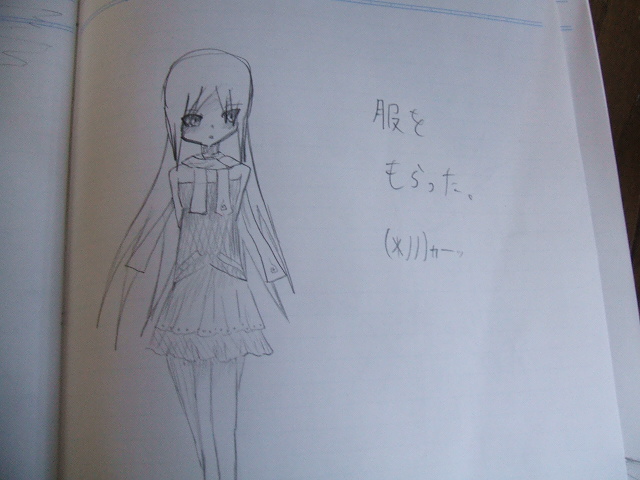 服を
もらった。
(*ﾉﾉ)ｶｰｯ